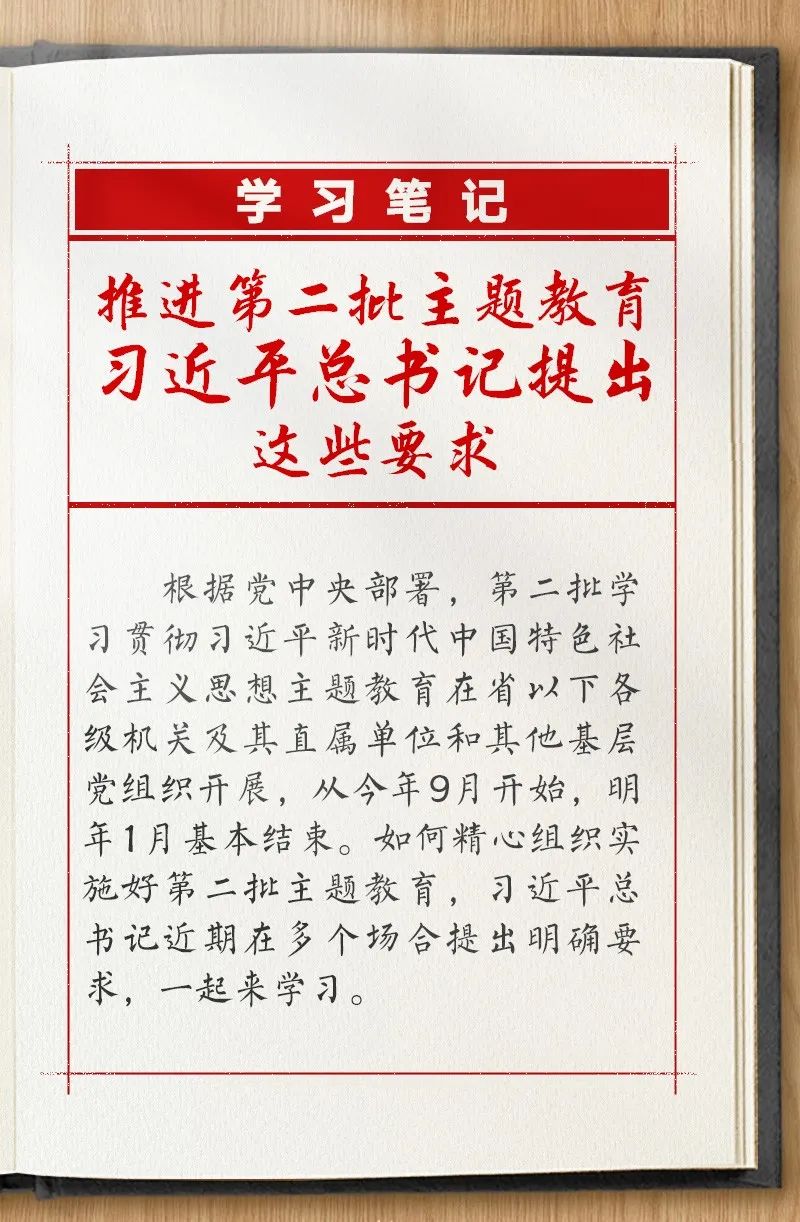 学习笔记
推进第二批主题教育
习近平总书记提出
这些要求
根据党中央部署，第二批学
习贯彻习近平新时代中国特色社
会主义思想主题教育在省以下各
级机关及其直属单位和其他基层
党组织开展，从今年9月开始，明
年1月基本结束。如何精心组织实
施好第二批主题教育，习近平总
书记近期在多个场合提出明确要
求，一起来学习。